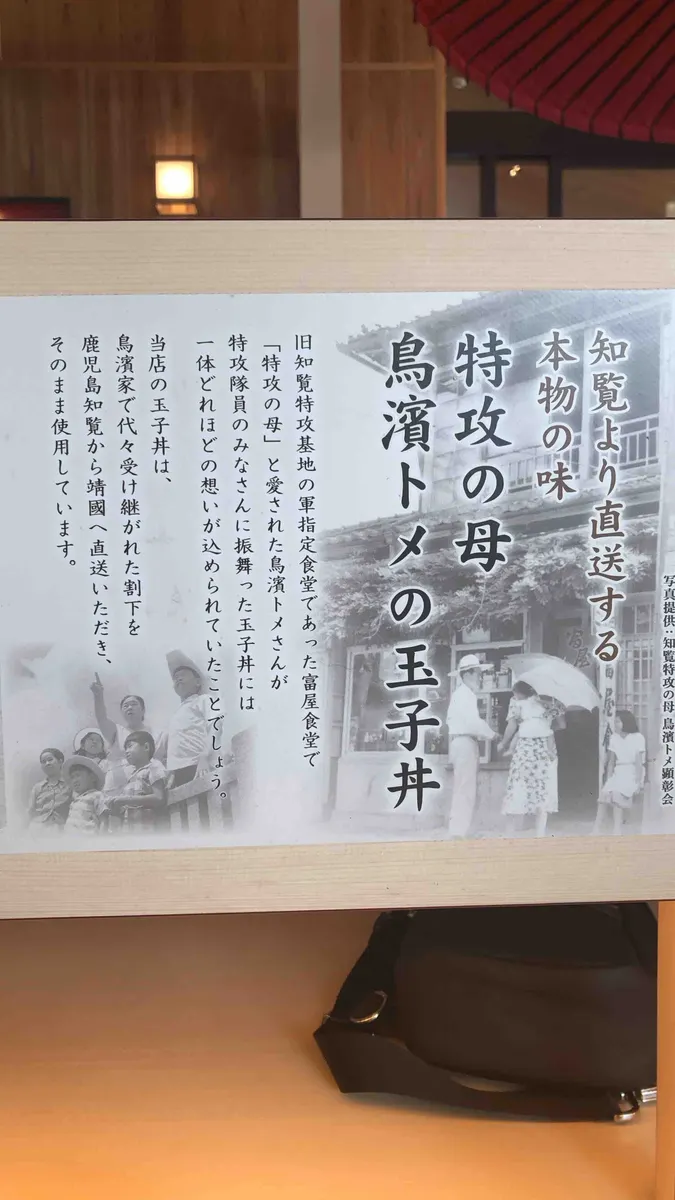 知覧より直送する
本物の味
特攻の母
鳥濱トメの玉子丼
旧知覧特攻基地の軍指定食堂であった富屋食堂で
「特攻の母」と愛された鳥濱トメさんが
特攻隊員のみなさんに振舞った玉子丼には
一体どれほどの想いが込められていたことでしょう。
当店の玉子丼は、
鳥濱家で代々受け継がれた割下を
鹿児島知覧から靖國へ直送いただき、
そのまま使用しています。
写真提供:知覧特攻の母 鳥濱トメ顕彰会